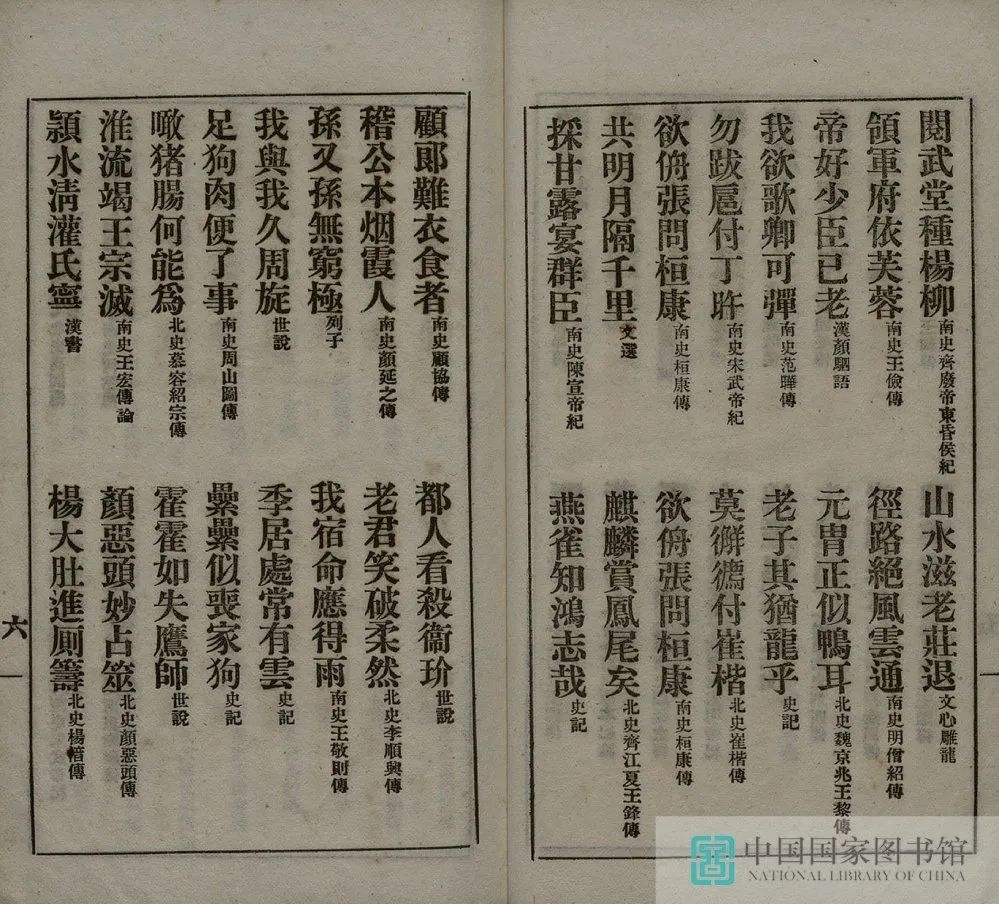 閱武堂種楊柳 南史齊廢帝東昏侯紀 山水滋老莊退 文心雕龍
領軍府依芙蓉 南史王儉傳 徑路絕風雲通 南史明僧紹傳
帝好少臣已老 漢顏駟語 元冑正似鴨耳 北史魏京兆王黎傳
我欲歌卿可彈 南史范曄傳 老子其猶龍乎 史記
勿跋扈付丁旿 南史宋武帝紀 莫獬㺔付崔楷 北史崔楷傳
欲侜張問桓康 南史桓康傳 欲侜張問桓康 南史桓康傳
共明月隔千里 文選 麒麟賞鳳尾矣 北史齊江夏王鋒傳
採甘露宴群臣 南史陳宣帝紀 燕雀知鴻志哉 史記
顧郎難衣食者 南史顧協傳 都人看殺衞玠 世說
稽公本烟霞人 南史顏延之傳 老君笑破柔然 北史李順興傳
孫又孫無窮極 列子 我宿命應得雨 南史王敬則傳
我與我久周旋 世說 季居處常有雲 史記
足狗肉便了事 南史周山圖傳 纍纍似喪家狗 史記
噉猪腸何能爲 北史慕容紹宗傳 霍霍如失鷹師 世說
淮流竭王宗滅 南史王宏傳論 顏惡頭妙占筮 北史顏惡頭傳
潁水淸灌氏寧 漢書 楊大肚進厠籌 北史楊愔傳
六
中国国家图书馆
NATIONAL LIBRARY OF CHINA